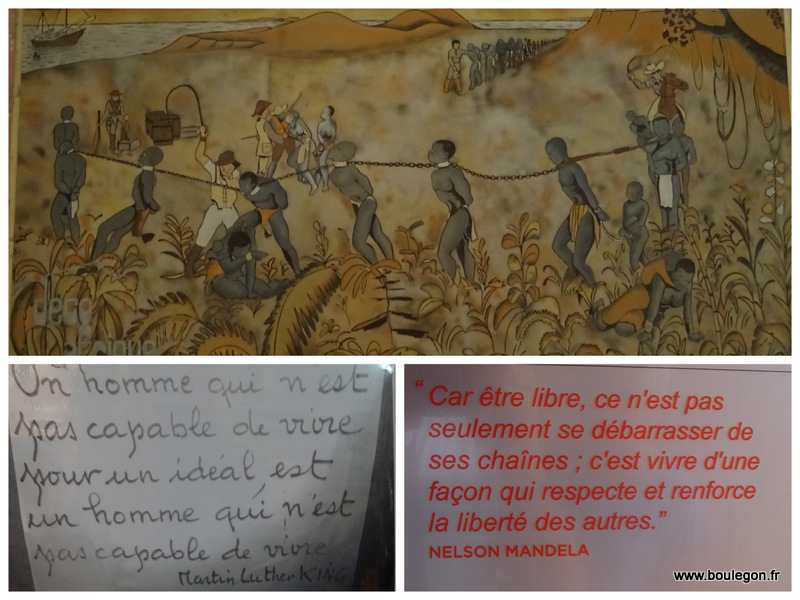 Un homme qui n'est
pas capable de vivre
pour un idéal, est
un homme qui n'est
pas capable de vivre
Martin Luther KING
“ Car être libre, ce n'est pas
seulement se débarrasser de
ses chaînes ; c'est vivre d'une
façon qui respecte et renforce
la liberté des autres.”
NELSON MANDELA
www.boulegon.fr